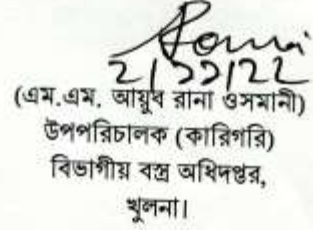 2/11/22
(এম.এম. আয়ুব রানা ওসমানী)
উপপরিচালক (কারিগরি)
বিভাগীয় বস্ত্র অধিদপ্তর,
খুলনা।